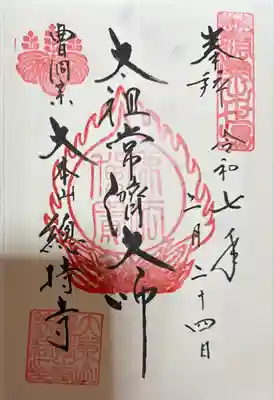 奉拝 令和七年二月二十四日
太祖常濟大師
曹洞宗
大本山 總持寺